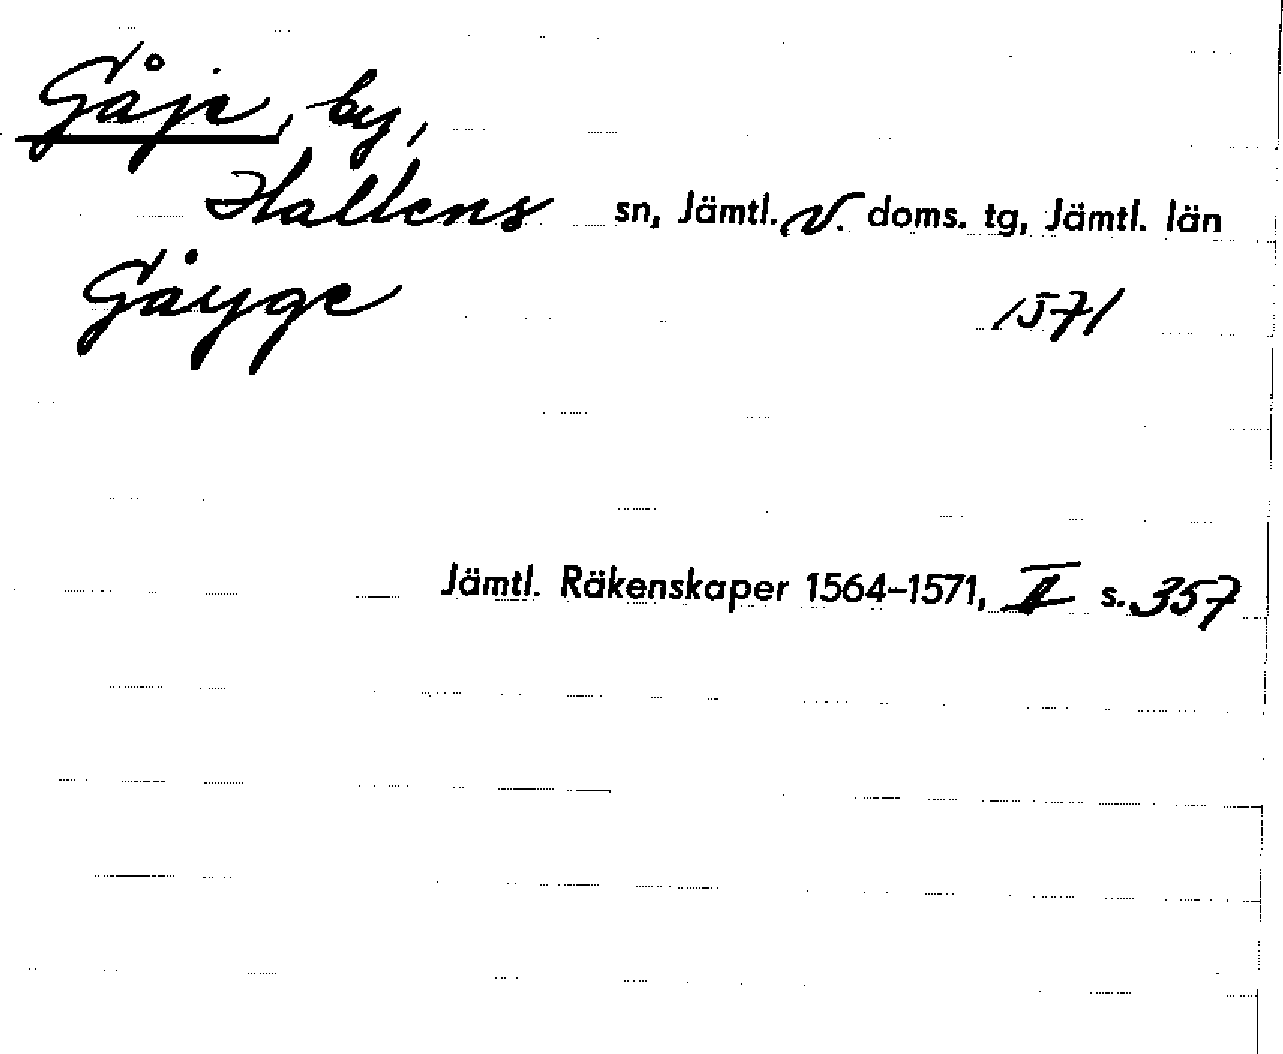 Gåje, by,
Hallens sn, Jämtl. V. doms. tg, Jämtl. län
Gåyge 1571
Jämtl. Räkenskaper 1564-1571, II s. 357